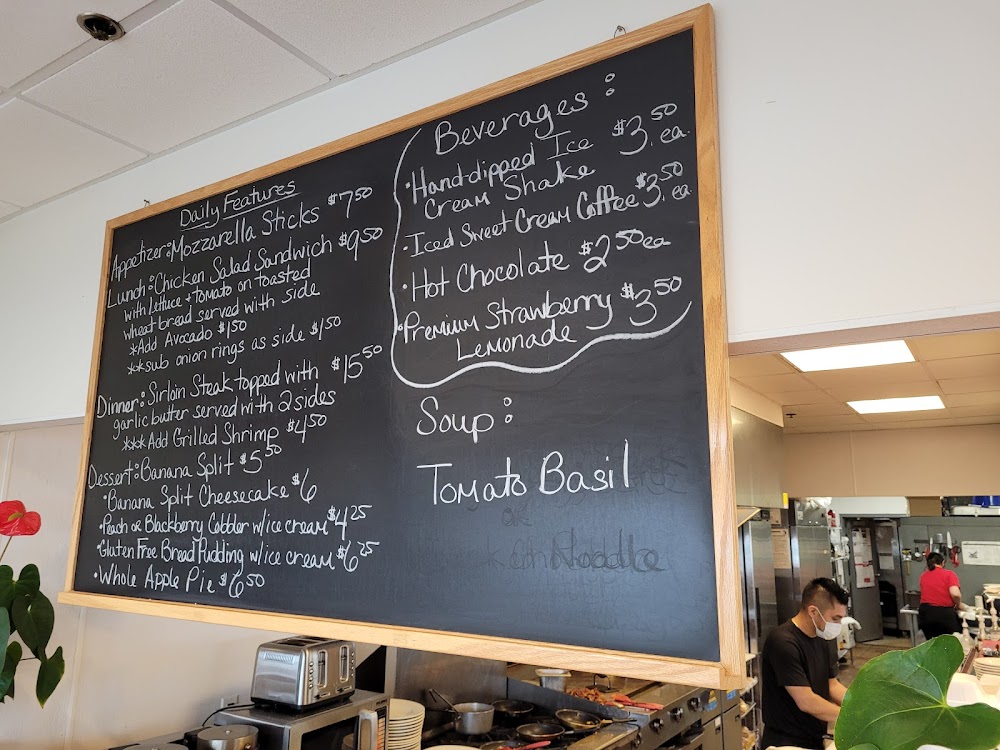 Daily Features
Appetizer: Mozzarella Sticks $7.50
Lunch: Chicken Salad Sandwich $9.50
with Lettuce + Tomato on toasted
wheat bread served with side
*Add Avocado $1.50
**sub onion rings as side $1.50
Dinner: Sirloin Steak topped with $15.50
garlic butter served with 2 sides
***Add Grilled Shrimp $4.50
Dessert: Banana Split $5.50
•Banana Split Cheesecake $6
•Peach or Blackberry Cobbler w/ice cream $4.25
•Gluten Free Bread Pudding w/ice cream $6.25
•Whole Apple Pie $6.50
Beverages:
•Hand-dipped Ice $3.50 ea.
Cream Shake
•Iced Sweet Cream Coffee $3.50 ea.
•Hot Chocolate $2.50 ea
•Premium Strawberry $3.50
Lemonade
Soup:
Tomato Basil
or
Noodle